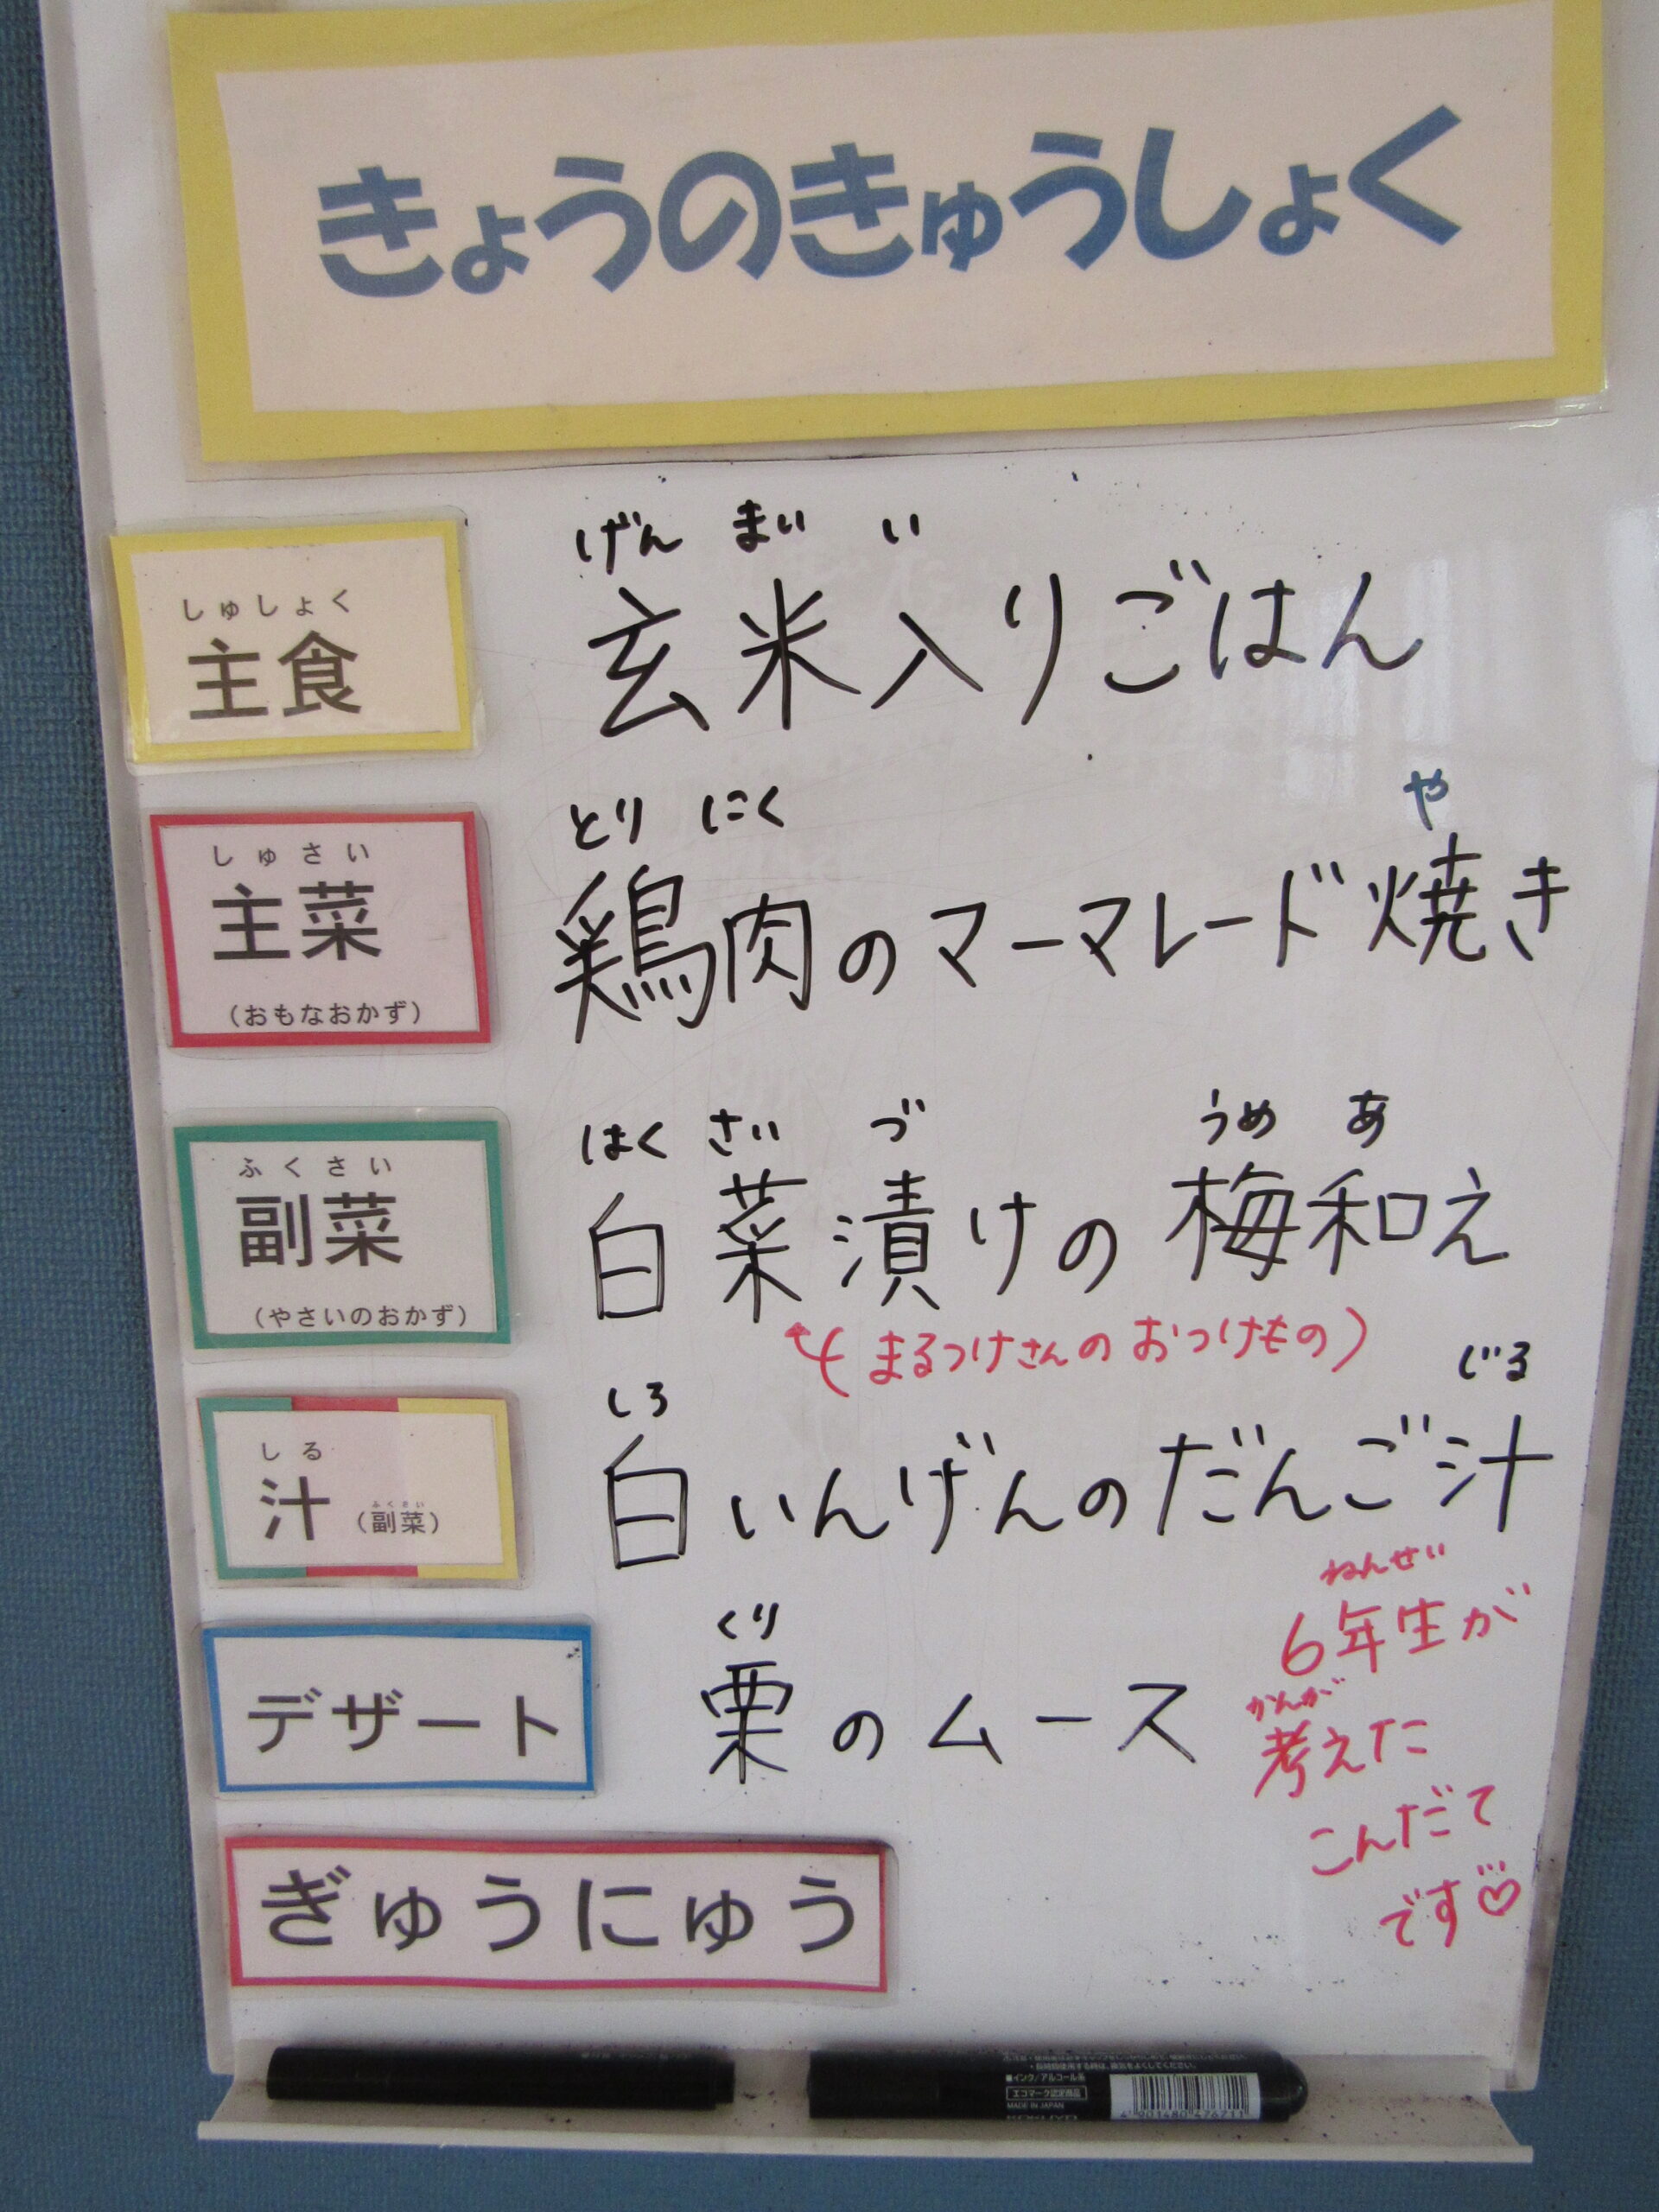 きょうのきゅうしょく
しゅしょく
主食
げん まい い
玄米入りごはん
しゅさい
主菜
(おもなおかず)
とり にく や
鶏肉のマーマレード焼き
ふくさい
副菜
(やさいのおかず)
はく さい づ うめ あ
白菜漬けの梅和え
(まるつけさんのおつけもの)
しる
汁(副菜)
ふくさい
しろ じる
白いんげんのだんご汁
デザート
くり
栗のムース
ねんせい
6年生が
かんが
考えた
こんだて
です♡
ぎゅうにゅう
■インク/アルコール系
エコマーク認定商品
MADE IN JAPAN
KOKUYO
4 901480 476711